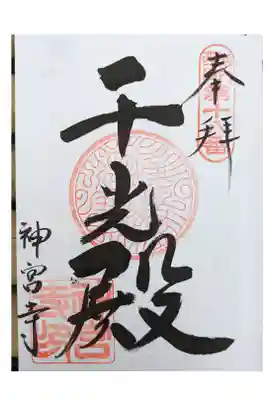 奉拝
千光殿
神宮寺